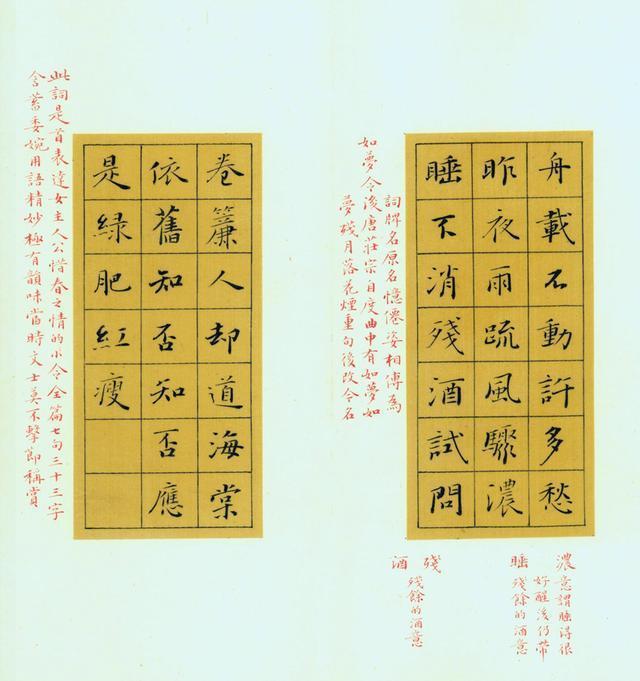 舟載不動許多愁
昨夜雨疏風驟濃
睡不消殘酒試問
濃意謂睡得很
好醒後仍帶
睡殘餘的酒意
殘
殘餘的酒意
酒
詞牌名原名憶僊姿相傳為
如夢令後唐莊宗自度曲中有如夢如
夢殘月落花煙重句後改今名
卷簾人却道海棠
依舊知否知否應
是綠肥紅瘦
此詞是首表達女主人公惜春之情的小令全篇七句三十三字
含蓄委婉用語精妙極有韻味當時文士莫不擊節稱賞